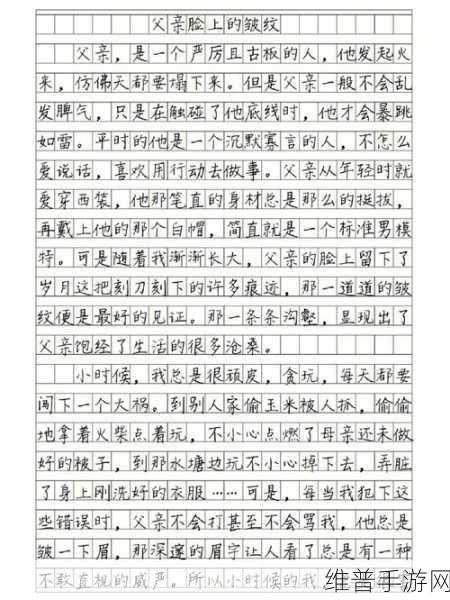 父亲脸上的皱纹
父亲，是一个严厉且古板的人，他发起火
来，仿佛天都要塌下来。但是父亲一般不会乱
发脾气，只是在触碰了他底线时，他才会暴跳
如雷。平时的他是一个沉默寡言的人，不怎么
爱说话，喜欢用行动去做事。父亲从年轻时就
爱穿西装，他那笔直的身材总是那么的挺拔，
再戴上他的那个白帽，简直就是一个标准男模
特。可是随着我渐渐长大，父亲的脸上留下了
岁月这把刻刀刻下的许多痕迹，那一道道的皱
纹便是最好的见证。那一条条沟壑，显现出了
父亲饱经了生活的很多沧桑。
小时候，我总是很顽皮，贪玩，每天都要
闯下一个大祸。到别人家偷玉米被人抓，偷偷
地拿着火柴点着玩，不小心点燃了母亲还未做
好的被子，到那水塘边玩不小心掉下去，弄脏
了身上刚洗好的衣服……可是，每当我犯下这
些错误时，父亲不会打甚至不会骂我，他总是
皱一下眉，那深邃的眉宇让人看了总是有一种
不敢直视的威严。所以小时候的我
维普手游网